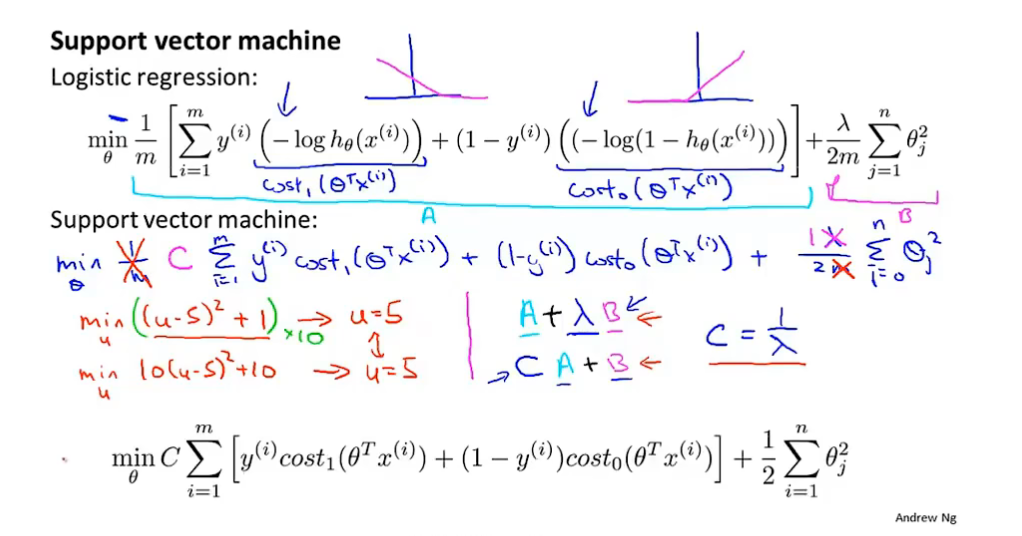 Support vector machine
Logistic regression:
min_θ 1/m [ Σ_{i=1}^{m} y^{(i)} (−log h_θ(x^{(i)})) + (1 − y^{(i)}) ((−log(1 − h_θ(x^{(i)}))) ] + λ/2m Σ_{j=1}^{n} θ_j^2
cost_1(θ^T x^{(i)}) cost_0(θ^T x^{(i)})
A B
Support vector machine:
min_θ 1/m C Σ_{i=1}^{m} y^{(i)} cost_1(θ^T x^{(i)}) + (1−y^{(i)}) cost_0(θ^T x^{(i)}) + 1 λ/2m Σ_{i=0}^{n} θ_j^2
min_u ((u−5)^2 + 1) ×10 → u=5
min_u 10(u−5)^2+10 → u=5
A + λ B ←
→ C A + B ←
C = 1/λ
min_θ C Σ_{i=1}^{m} [ y^{(i)} cost_1(θ^T x^{(i)}) + (1 − y^{(i)}) cost_0(θ^T x^{(i)}) ] + 1/2 Σ_{i=1}^{n} θ_j^2
Andrew Ng